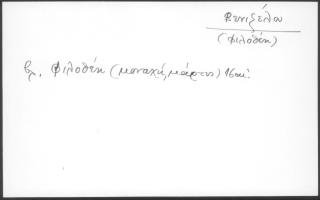 Βενιζέλου
(Φιλοθέη)
βλ. Φιλοθέη (μοναχή, μάρτυς) 16ου